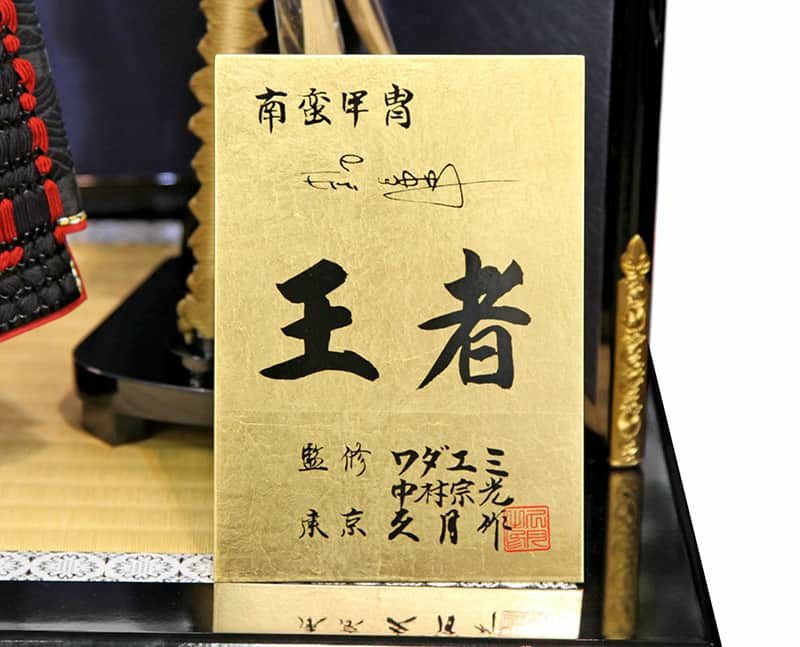 南蛮甲冑
王者
監修 ワダエミ
中村宗光
東京 久月作